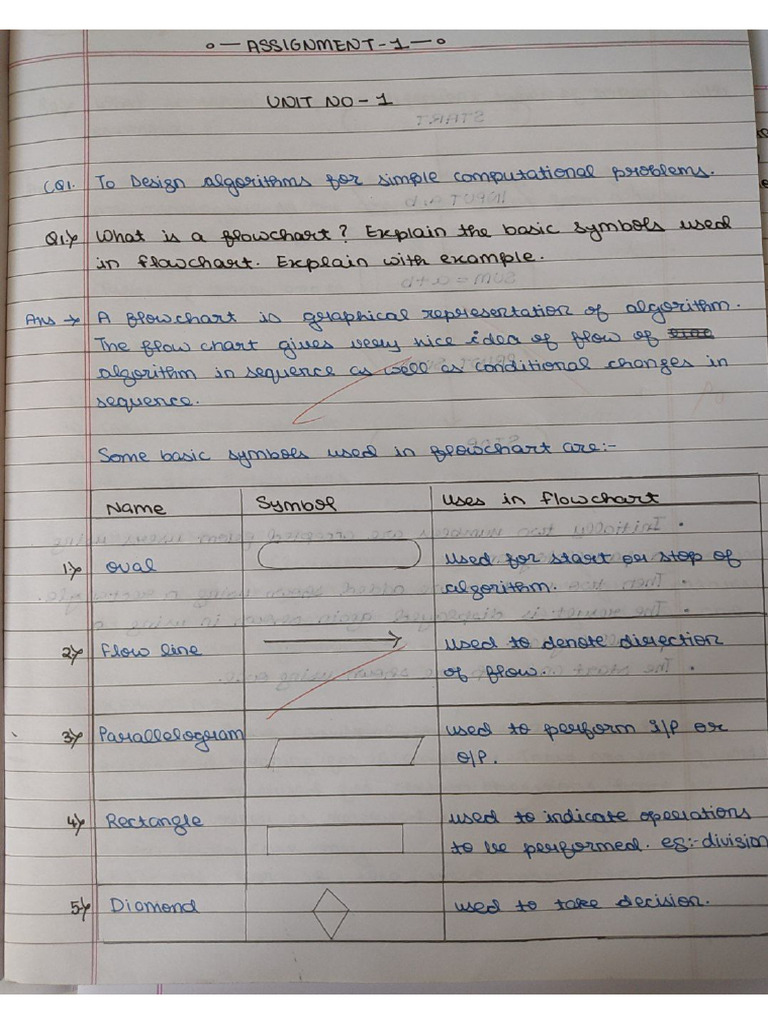 ASSIGNMENT-1
UNIT NO-1
CQ1. To Design algorithms for simple computational problems.
Q1.> What is a flowchart? Explain the basic symbols used
in flowchart. Explain with example.
Ans → A flowchart is graphical representation of algorithm.
The flow chart gives very nice idea of flow of
algorithm in sequence as well as conditional changes in
sequence.
Some basic symbols used in flowchart are:-
Name Symbol Uses in flowchart
1.> Oval used for start or stop of
algorithm.
2.> Flow line used to denote direction
of flow.
3.> Parallelogram used to perform I/P or
O/P.
4.> Rectangle used to indicate operations
to be performed. eg:- division
5.> Diamond used to take decision.